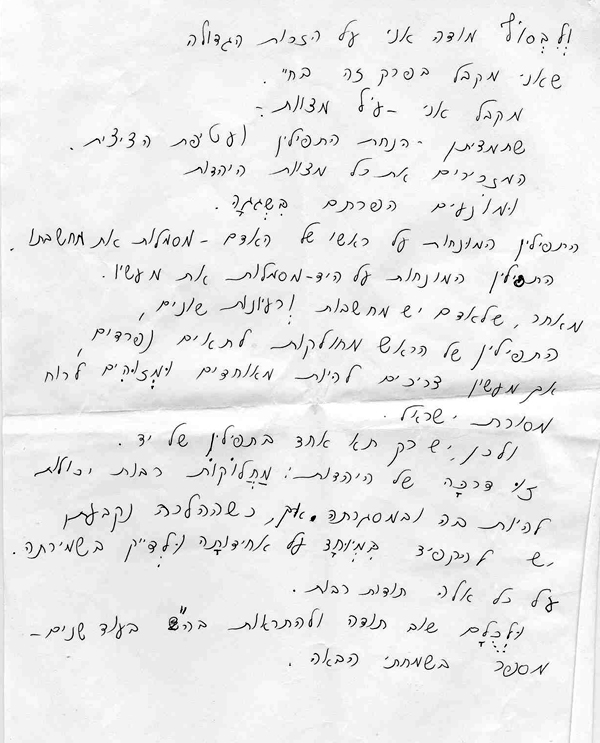 וְלִבְסוֹף מודה אני על הזכות הגדולה
שאני מקבל בפרק זה בח".
מקבל אני -עול מצוות-
שתמציתן -הנחת התפילין ועטיפת הציצית.
המזכירים את כל מצוות היהדות
ומונעים הפרתם בִּשְׁגָגָה.
התפילין המונחות על ראשו של האדם -מסמלות את מחשבתו.
התפילין המונחות על היד-מסמלות את מעשיו.
מאחר, שלאדם יש מחשבות ורעיונות שונים,
התפילין של הראש מחולקות לתאים נפרדים,
אך מעשיו צריכים להיות מאוחדים וּמְזוּהִים לרוח
מסורת ישראל.
ולכן, יש רק תא אחד בתפילין של יד.
זוֹ דַּרְכָּהּ של היהדות: מַחֲלוֹקוֹת רבות יכולות
להיות בה ובמסגרתה. אך, כשההלכה נקבעת
יש להקפיד בִּמְיוּחָד על אחידוּתָהּ וּלְדַיֵּק בשמירתה.
על כל אלה תודות רבות.
וּלְכֻלָּם שוב תודה ולהתראות בה" בעוד שנים-
מספר בשמחתי הבאה.